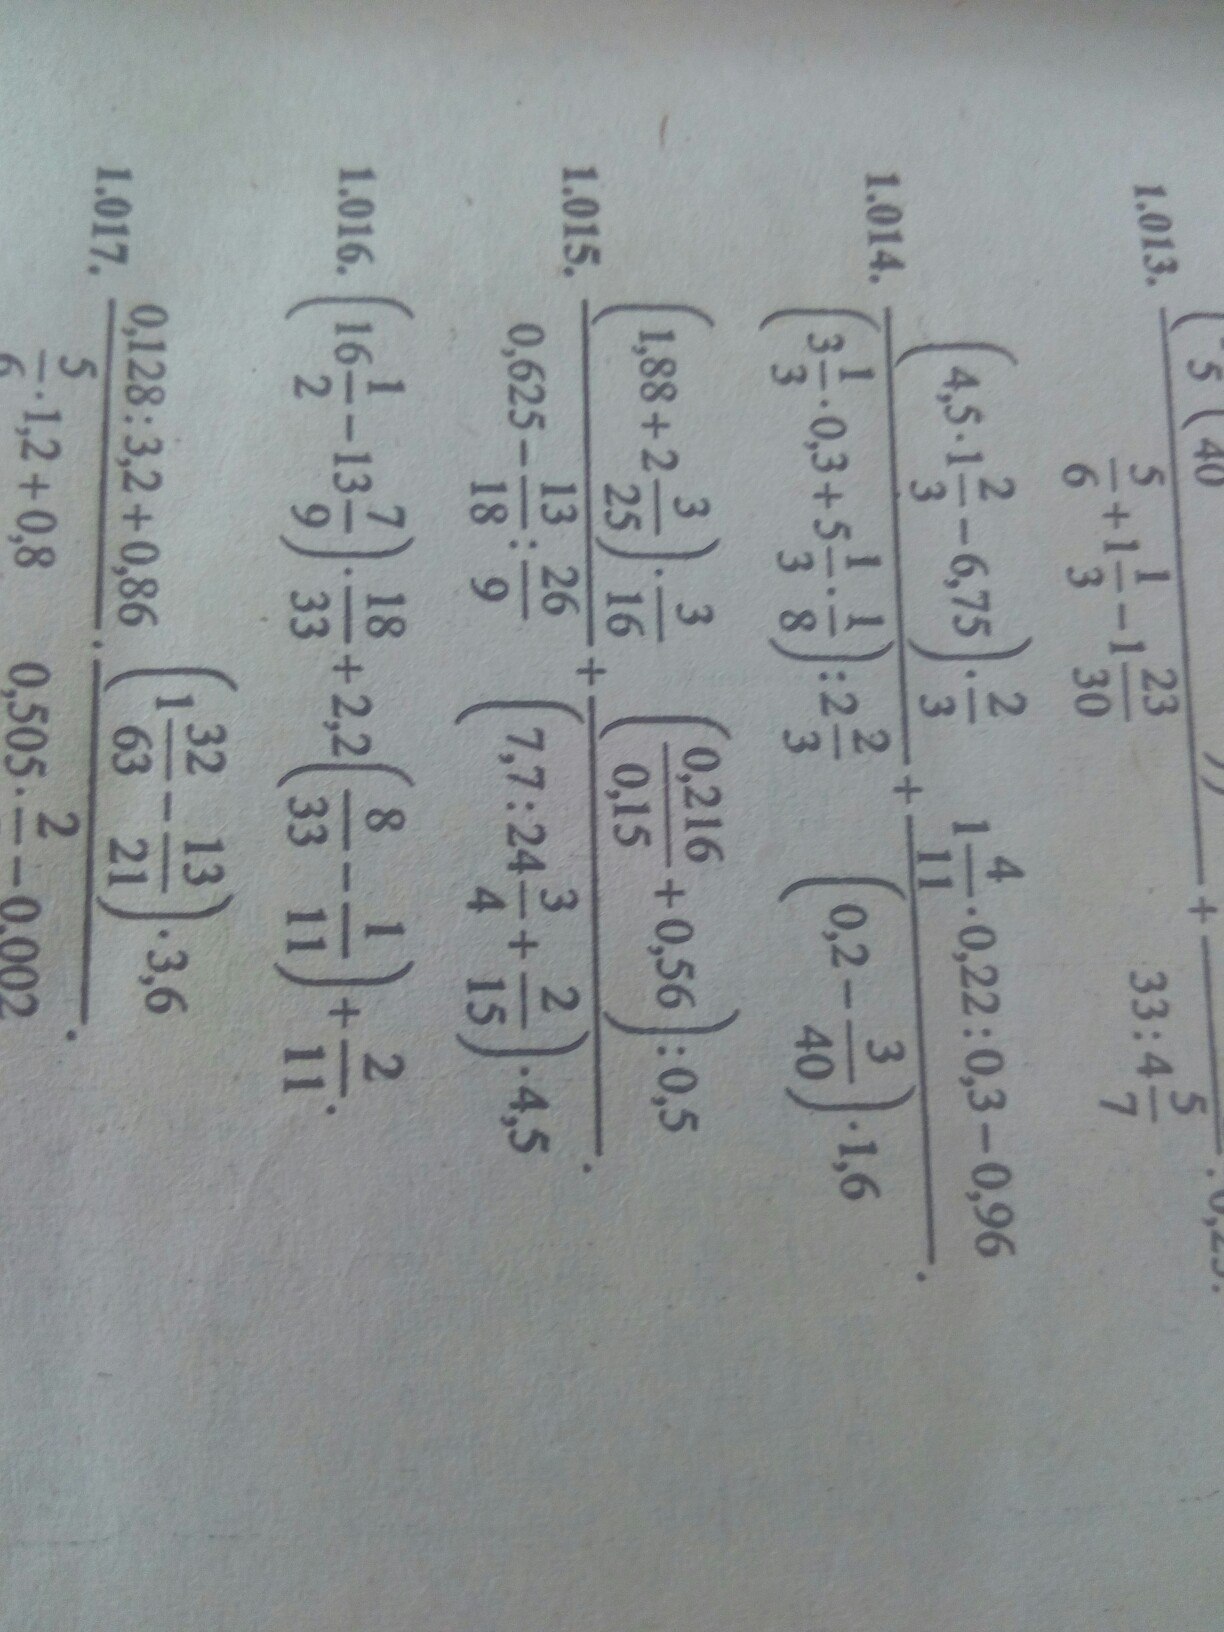 5 ( 40
1.013. 5/6 + 1 1/3 − 1 23/30 + 33 : 4 5/7
1.014. (4,5 · 1 2/3 − 6,75) · 2/3 / (3 1/3 · 0,3 + 5 1/3 · 1/8) : 2 2/3 + 1 4/11 · 0,22 : 0,3 − 0,96 / (0,2 − 3/40) · 1,6 .
1.015. (1,88 + 2 3/25) · 3/16 / 0,625 − 13/18 : 26/9 + (0,216/0,15 + 0,56) : 0,5 / (7,7 : 24 3/4 + 2/15) · 4,5 .
1.016. (16 1/2 − 13 7/9) · 18/33 + 2,2 (8/33 − 1/11) + 2/11 .
1.017. 0,128 : 3,2 + 0,86 / 5/6 · 1,2 + 0,8 · (1 32/63 − 13/21) · 3,6 / 0,505 · 2/ − 0,002 .